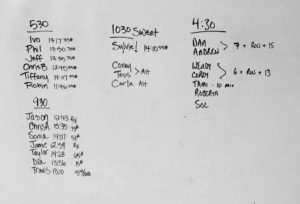 530
Ivo 13:17
Phil 13:50
Jeff 13:39
Chris B 12:40
Tiffany 14:07
Robin 11:46
930
Jason 12:43 Rx
Chris H 15:35
Sonia 14:07
Jamie 12:59 Rx
Taylor 14:28
Dila 13:56
Travis 13:10
1030 Sweat
Sylvie! 14:10
Corey
Tess > Alt
Carla Alt
4:30
Dan
Andrew > 7 + Row + 15
Wendy
Corey > 6 + Row + 13
Tami - 10 min
Roberta
Sol